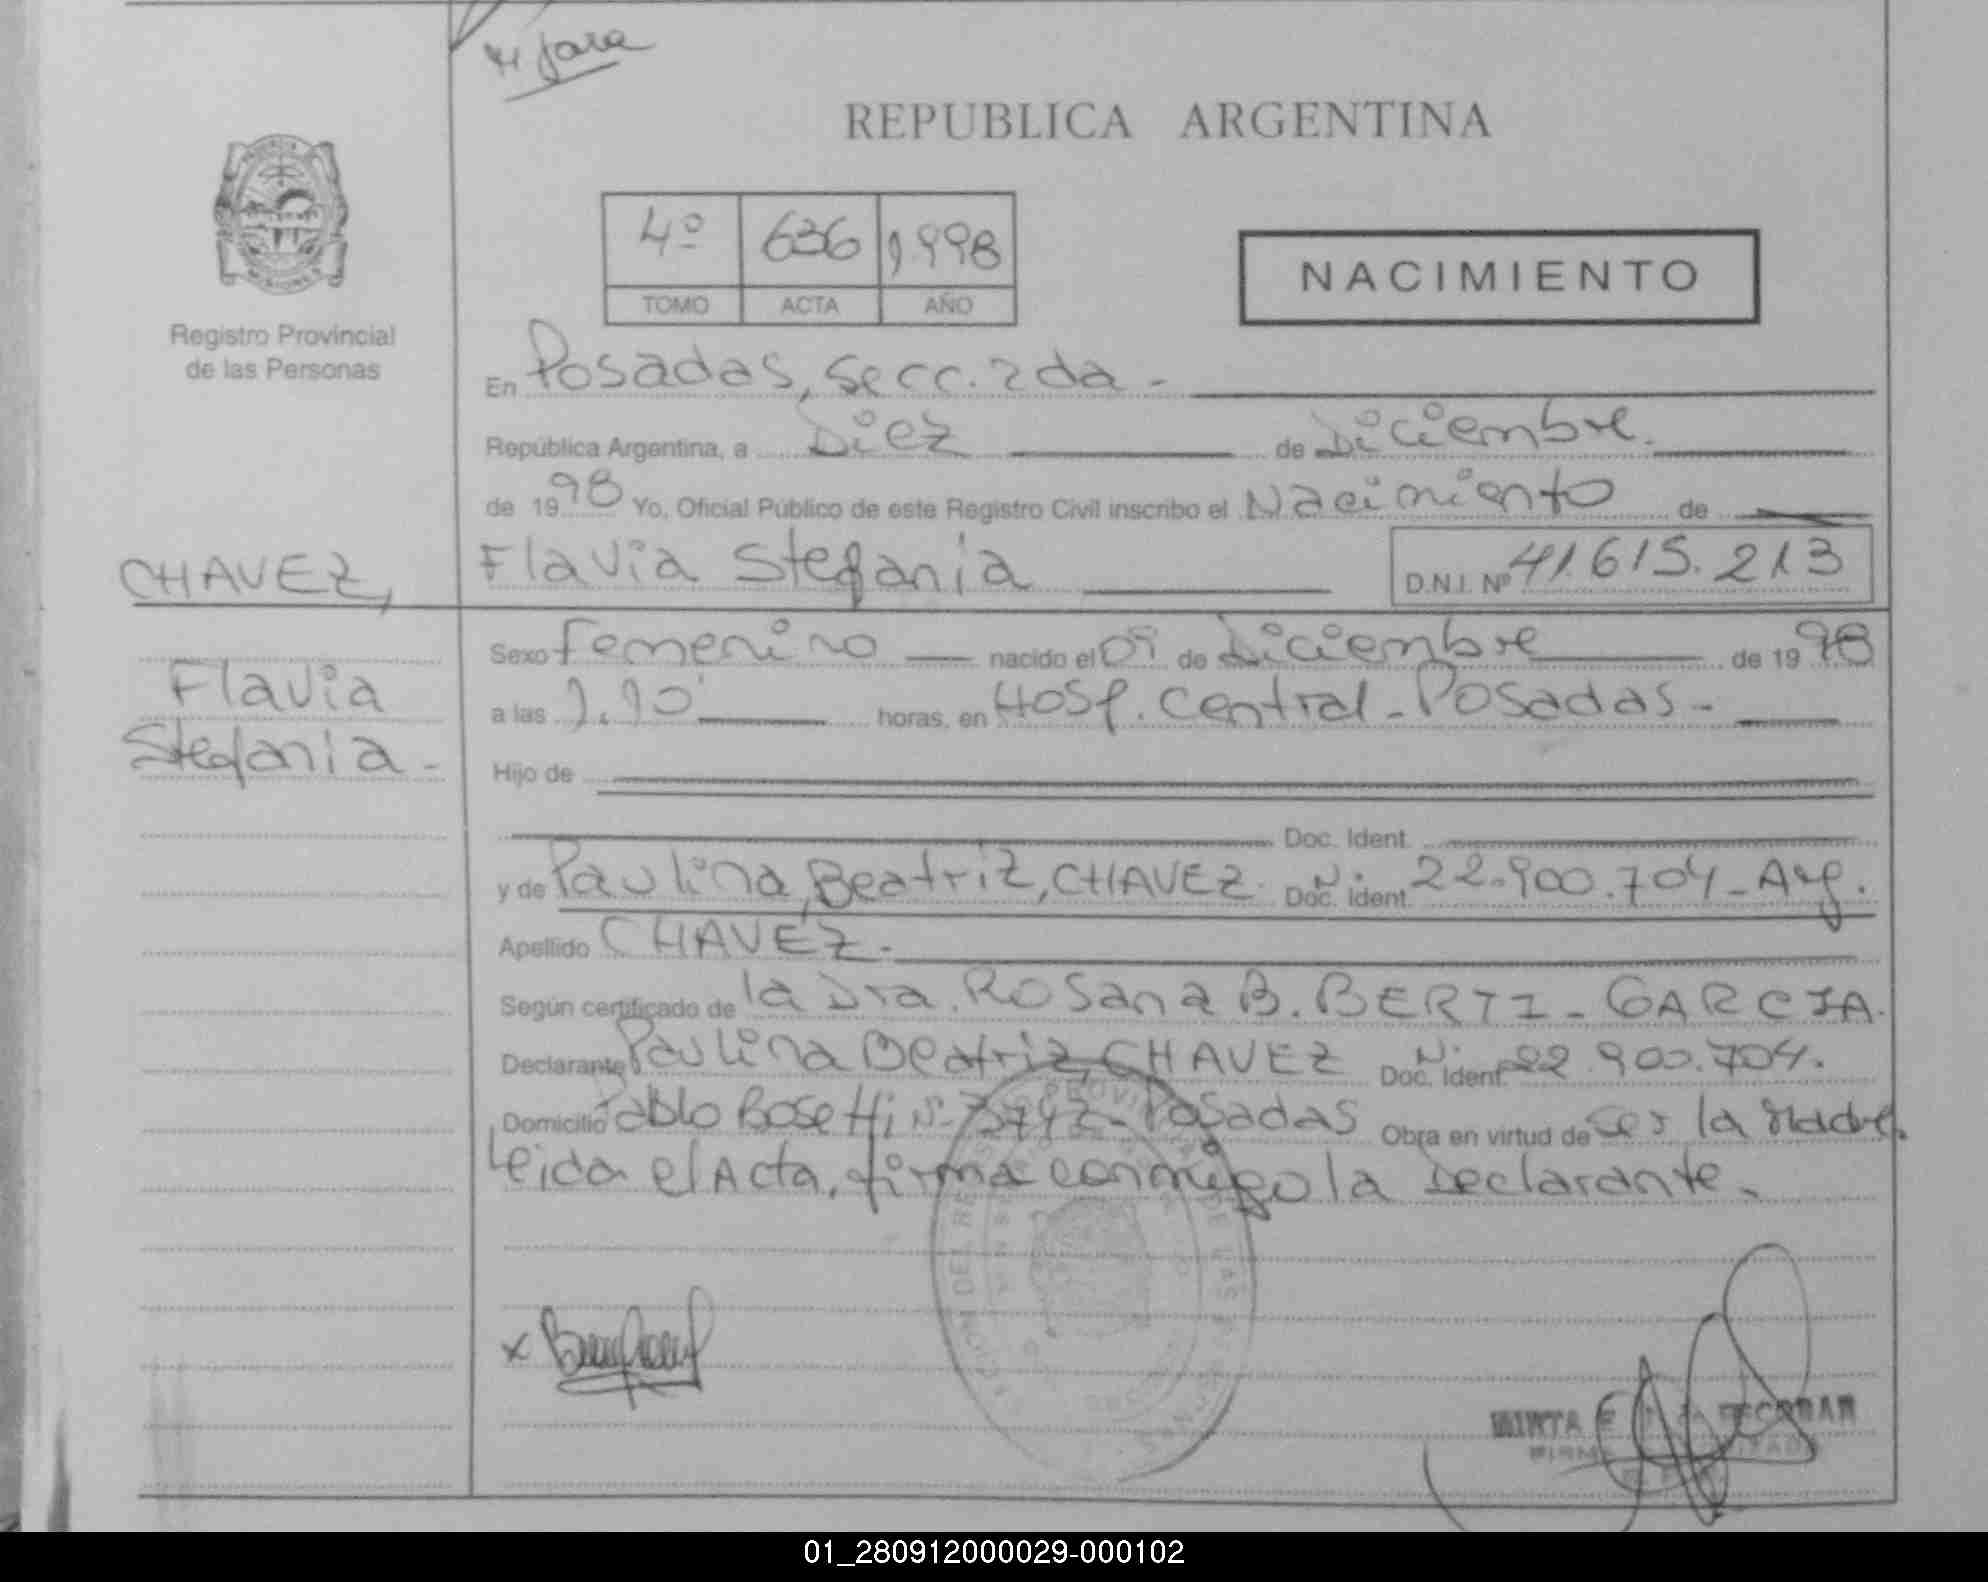 Jara
REPUBLICA ARGENTINA
4º 636 1998
TOMO ACTA AÑO
NACIMIENTO
Registro Provincial
de las Personas
En Posadas, Secc. 2da -
República Argentina, a Diez de Diciembre.
de 1998 Yo, Oficial Público de este Registro Civil inscribo el Nacimiento de
CHAVEZ, Flavia Stefania D.N.I. Nº 41.615.213
Flavia
Stefania -
Sexo Femenino nacido el de Diciembre de 1998
a las horas, en Hosp. Central - Posadas -
Hijo de
Doc. Ident.
y de Paulina Beatriz, CHAVEZ. Doc. Ident. Nº 22.900.704 - Arg.
Apellido CHAVEZ -
Según certificado de la Dra. Rosana B. BERTI - GARCIA.
Declarante Paulina Beatriz CHAVEZ Doc. Ident. Nº 22.900.704.
Domicilio Pablo Bosetti Nº - Posadas Obra en virtud de ser la Madre.
Leida el Acta, firma conmigo la Declarante.
x
MIRTA
01_280912000029-000102